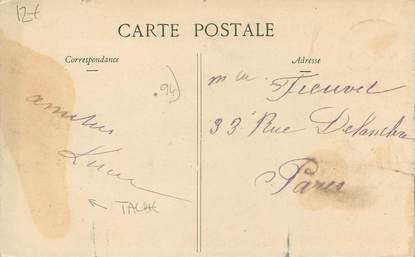 12€
CARTE POSTALE
Correspondance
Adresse
94)
amitiés
TACHE
33 Rue Delambre
Paris